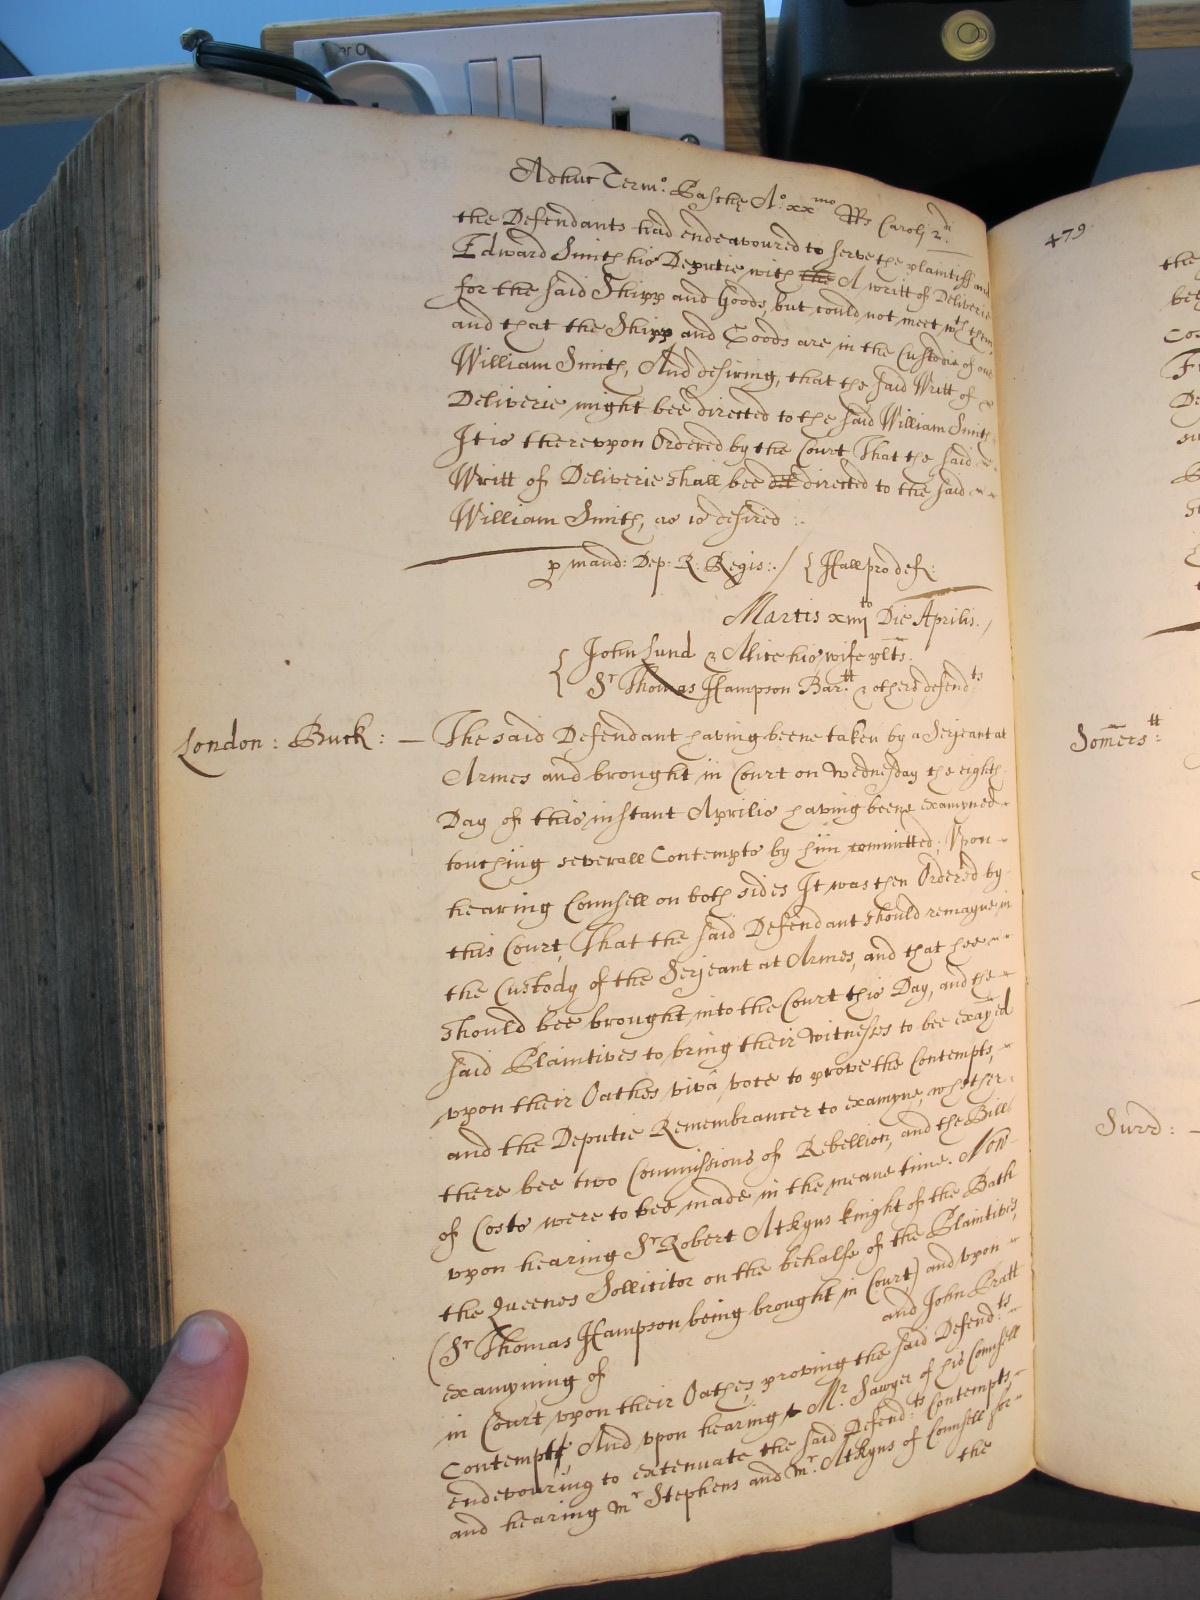 Adhuc Termo: Pasche Ao: xxmo RRs Caroli 2di
the Defendants had endeavoured to serve the plaintiff and
Edward Smith his Deputie with the A writt of Deliverie
for the said Shipp and Goods, but could not meet wth them,
and that the Shipp and Goods are in the Custodie of one
William Smith, And desiring, that the said Writt of
Deliverie might bee directed to the said William Smith
It is therevpon Ordered by the Court That the said
Writt of Deliverie shall bee del directed to the said
William Smith, as is desired :.
p mand: Dep: R: Regis:. / { Hall pro def:
Martis xiiijto Die Aprilis. /
{ John Lund & Alice his wife plts.
Sr Thomas Hampson Bartt: & others defendts
London: Buck: — The said Defendant having beene taken by a Serjeant at
Armes and brought in Court on Wednesday the eighth
Day of this instant Aprilis having beene examyned
touching severall Contempts by him committed; Vpon
hearing Counsell on both sides It was then Ordered by
this Court, That the said Defendant should remayne in
the Custody of the Serjeant at Armes, and that hee
should bee brought into the Court this Day, and the
said Plaintives to bring their Witnesses to bee exayed
vpon their Oathes viva voce to prove the Contempts,
and the Deputie Remembrancer to examyne, whether
there bee two Commissions of Rebellion, and the Bill
of Costs were to bee made in the meane time. Now
vpon hearing Sr Robert Atkyns knight of the Bath
the Queenes Sollicitor on the behalfe of the Plaintives,
(Sr Thomas Hampson being brought in Court) and vpon
examyning of and John Pratt
in Court vpon their Oathes, proving the said Defendts:
Contempts, And vpon hearing Mr. Sawyer of his Counsell
endevouring to extenuate the said Defend:ts Contempts,
and hearing mr Stephens and mr. Atkyns of Counsell for
the
479
the
Somerstt:
Surr: